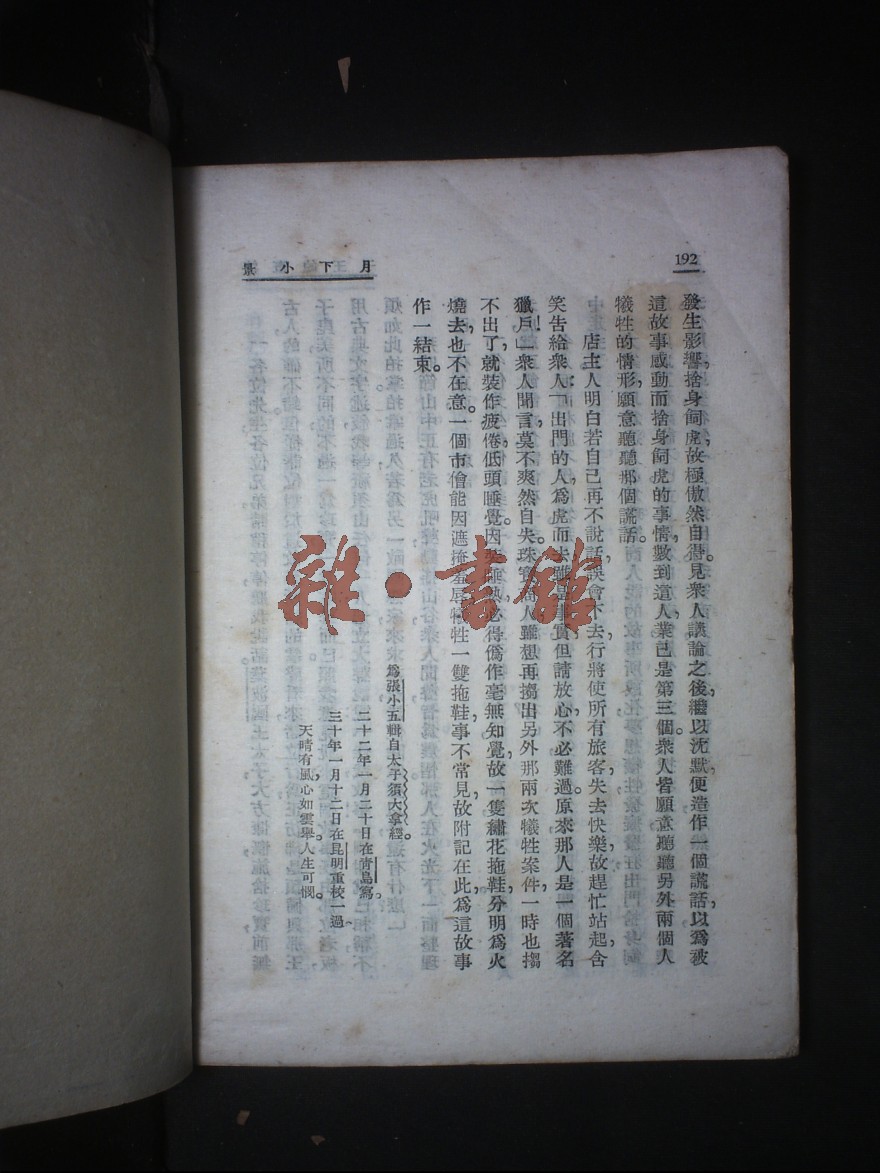 192
月下小景
發生影響，捨身飼虎，故極傲然自得。見衆人議論之後，繼以沈默，便造作一個謊話，以爲被
這故事感動而捨身飼虎的事情，數到這人，業已是第三個。衆人皆願意聽聽另外兩個人
犧牲的情形，願意聽聽那個謊話。
店主人明白若自己再不說話，誤會下去，行將使所有旅客失去快樂，故趕忙站起，含
笑告給衆人：「出門的人爲虎而去，雖是事實，但請放心，不必難過。原來那人是一個著名
獵戶！」衆人聞言，莫不爽然自失。珠寶商人雖想再搊出另外那兩次犧牲案件，一時也搊
不出了，就裝作疲倦，低頭睡覺。因裝睡熟，必得僞作毫無知覺，故一隻繡花拖鞋，分明爲火
燒去，也不在意。一個市儈能因遮掩羞辱，犧牲一雙拖鞋，事不常見，故附記在此，爲這故事
作一結束。
爲張小五輯自太子須大拿經。
二十二年一月二十日在靑島寫。
三十年一月十二日在昆明重校一過
天晴有風，心如雲舉，人生可憫。
雜·書館